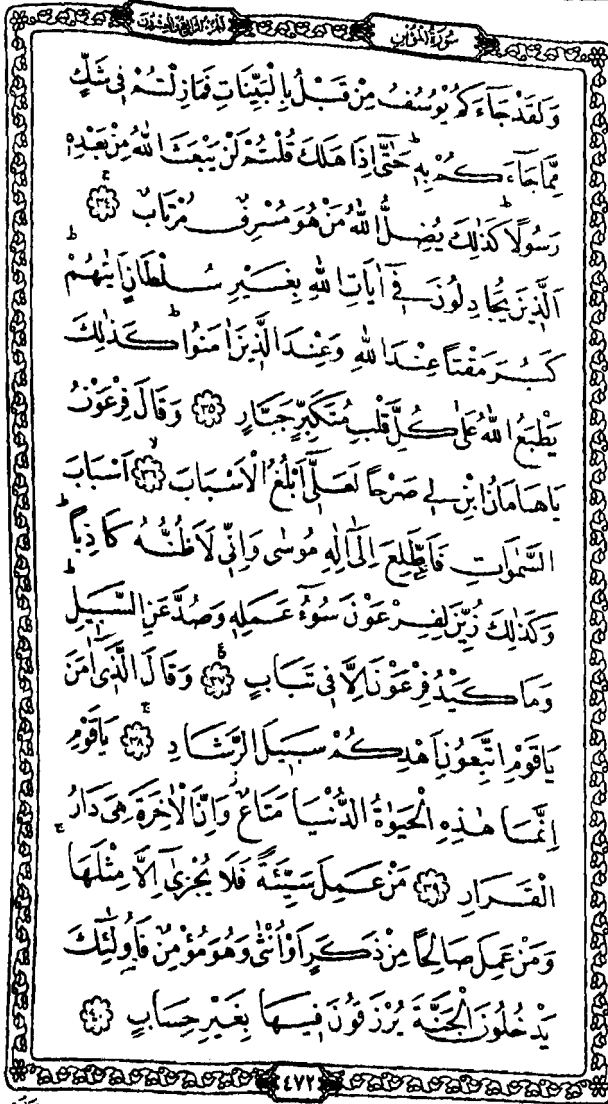 سورة المؤمن
الجزء الرابع والعشرون
وَلَقَدْ جَاۤءَكُمْ يُوسُفُ مِنْ قَبْلُ بِالْبَيِّنَاتِ فَمَا زِلْتُمْ فِى شَكٍّ
مِمَّا جَاۤءَكُمْ بِهِ حَتّٰىٓ اِذَا هَلَكَ قُلْتُمْ لَنْ يَبْعَثَ اللّٰهُ مِنْ بَعْدِهِ
رَسُولًا كَذٰلِكَ يُضِلُّ اللّٰهُ مَنْ هُوَ مُسْرِفٌ مُرْتَابٌ ٣٤
اَلَّذِينَ يُجَادِلُونَ فِىٓ اٰيَاتِ اللّٰهِ بِغَيْرِ سُلْطَانٍ اَتٰيهُمْ
كَبُرَ مَقْتًا عِنْدَ اللّٰهِ وَعِنْدَ الَّذِينَ اٰمَنُوا كَذٰلِكَ
يَطْبَعُ اللّٰهُ عَلٰى كُلِّ قَلْبِ مُتَكَبِّرٍ جَبَّارٍ ٣٥ وَقَالَ فِرْعَوْنُ
يَاهَامَانُ ابْنِ لِى صَرْحًا لَعَلِّىٓ اَبْلُغُ الْاَسْبَابَ ٣٦ اَسْبَابَ
السَّمٰوَاتِ فَاَطَّلِعَ اِلٰٓى اِلٰهِ مُوسٰى وَاِنِّى لَاَظُنُّهُ كَاذِبًا
وَكَذٰلِكَ زُيِّنَ لِفِرْعَوْنَ سُوۤءُ عَمَلِهِ وَصُدَّ عَنِ السَّبِيلِ
وَمَا كَيْدُ فِرْعَوْنَ اِلَّا فِى تَبَابٍ ٣٧ وَقَالَ الَّذِىٓ اٰمَنَ
يَاقَوْمِ اتَّبِعُونِ اَهْدِكُمْ سَبِيلَ الرَّشَادِ ٣٨ يَاقَوْمِ
اِنَّمَا هٰذِهِ الْحَيٰوةُ الدُّنْيَا مَتَاعٌ وَاِنَّ الْاٰخِرَةَ هِىَ دَارُ
الْقَرَارِ ٣٩ مَنْ عَمِلَ سَيِّئَةً فَلَا يُجْزٰىٓ اِلَّا مِثْلَهَا
وَمَنْ عَمِلَ صَالِحًا مِنْ ذَكَرٍ اَوْ اُنْثٰى وَهُوَ مُؤْمِنٌ فَاُولٰۤئِكَ
يَدْخُلُونَ الْجَنَّةَ يُرْزَقُونَ فِيهَا بِغَيْرِ حِسَابٍ ٤٠
٤٧٢